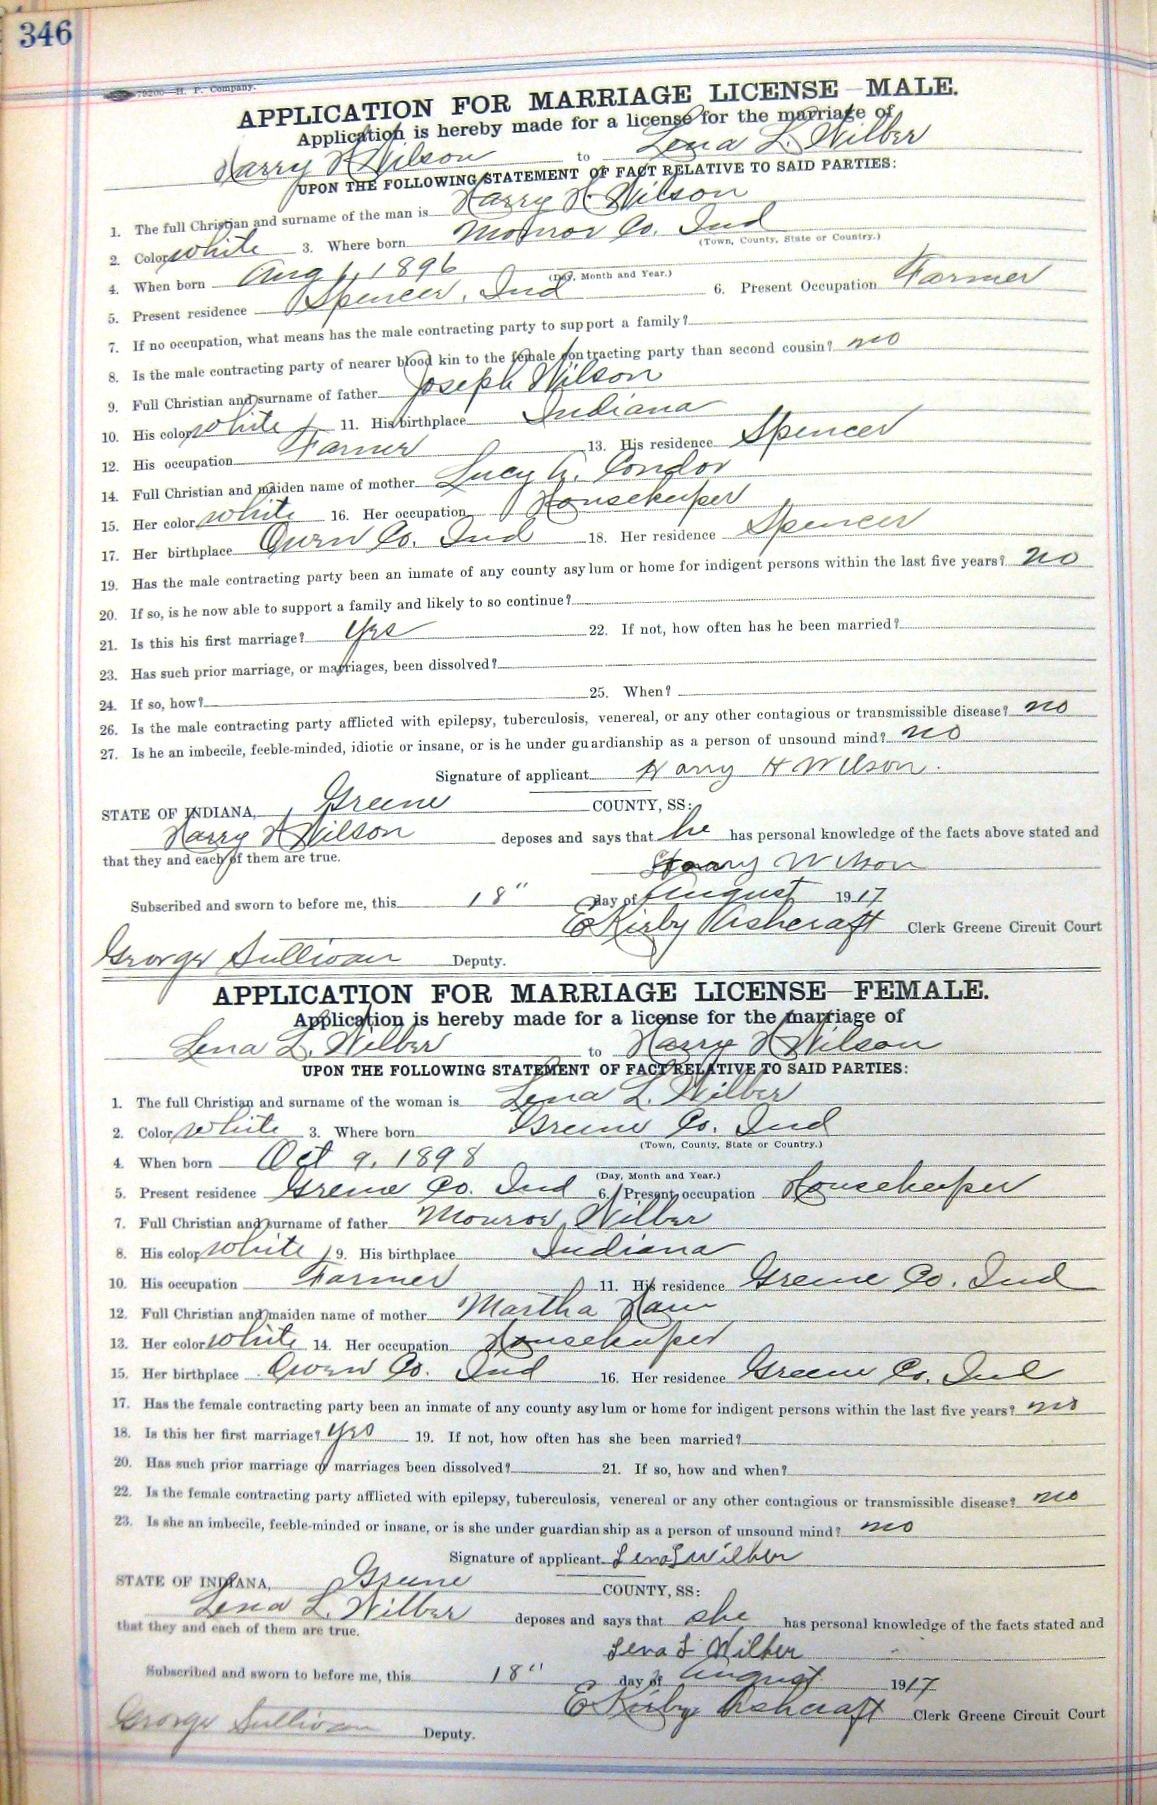 346
79200—H. P. Company.
APPLICATION FOR MARRIAGE LICENSE—MALE.
Application is hereby made for a license for the marriage of
Harry H Wilson to Lena L. Wilber
UPON THE FOLLOWING STATEMENT OF FACT RELATIVE TO SAID PARTIES:
1. The full Christian and surname of the man is Harry H. Wilson
2. Color white 3. Where born Monroe Co. Ind
(Town, County, State or Country.)
4. When born Aug 1, 1896
(Day, Month and Year.)
5. Present residence Spencer, Ind 6. Present Occupation Farmer
7. If no occupation, what means has the male contracting party to support a family?
8. Is the male contracting party of nearer blood kin to the female contracting party than second cousin? no
9. Full Christian and surname of father Joseph Wilson
10. His color white 11. His birthplace Indiana
12. His occupation Farmer 13. His residence Spencer
14. Full Christian and maiden name of mother Lucy A. Condor
15. Her color white 16. Her occupation Housekeeper
17. Her birthplace Owen Co. Ind 18. Her residence Spencer
19. Has the male contracting party been an inmate of any county asylum or home for indigent persons within the last five years? no
20. If so, is he now able to support a family and likely to so continue?
21. Is this his first marriage? Yes 22. If not, how often has he been married?
23. Has such prior marriage, or marriages, been dissolved?
24. If so, how? 25. When?
26. Is the male contracting party afflicted with epilepsy, tuberculosis, venereal, or any other contagious or transmissible disease? no
27. Is he an imbecile, feeble-minded, idiotic or insane, or is he under guardianship as a person of unsound mind? no
Signature of applicant Harry H Wilson.
STATE OF INDIANA, Greene COUNTY, SS:
Harry H Wilson deposes and says that he has personal knowledge of the facts above stated and
that they and each of them are true.
Harry Wilson
Subscribed and sworn to before me, this 18" day of August 1917
E Kirby Ashcraft Clerk Greene Circuit Court
George Sullivan Deputy.
APPLICATION FOR MARRIAGE LICENSE—FEMALE.
Application is hereby made for a license for the marriage of
Lena L. Wilber to Harry H Wilson
UPON THE FOLLOWING STATEMENT OF FACT RELATIVE TO SAID PARTIES:
1. The full Christian and surname of the woman is Lena L. Wilber
2. Color white 3. Where born Greene Co. Ind
(Town, County, State or Country.)
4. When born Oct 9, 1898
(Day, Month and Year.)
5. Present residence Greene Co. Ind 6. Present occupation Housekeeper
7. Full Christian and surname of father Monroe Wilber
8. His color white 9. His birthplace Indiana
10. His occupation Farmer 11. His residence Greene Co. Ind
12. Full Christian and maiden name of mother Martha
13. Her color white 14. Her occupation Housekeeper
15. Her birthplace Owen Co. Ind 16. Her residence Greene Co. Ind
17. Has the female contracting party been an inmate of any county asylum or home for indigent persons within the last five years? no
18. Is this her first marriage? Yes 19. If not, how often has she been married?
20. Has such prior marriage or marriages been dissolved? 21. If so, how and when?
22. Is the female contracting party afflicted with epilepsy, tuberculosis, venereal or any other contagious or transmissible disease? no
23. Is she an imbecile, feeble-minded or insane, or is she under guardianship as a person of unsound mind? no
Signature of applicant Lena L Wilber
STATE OF INDIANA, Greene COUNTY, SS:
Lena L. Wilber deposes and says that she has personal knowledge of the facts stated and
that they and each of them are true.
Lena L Wilber
Subscribed and sworn to before me, this 18" day of August 1917
E Kirby Ashcraft Clerk Greene Circuit Court
George Sullivan Deputy.